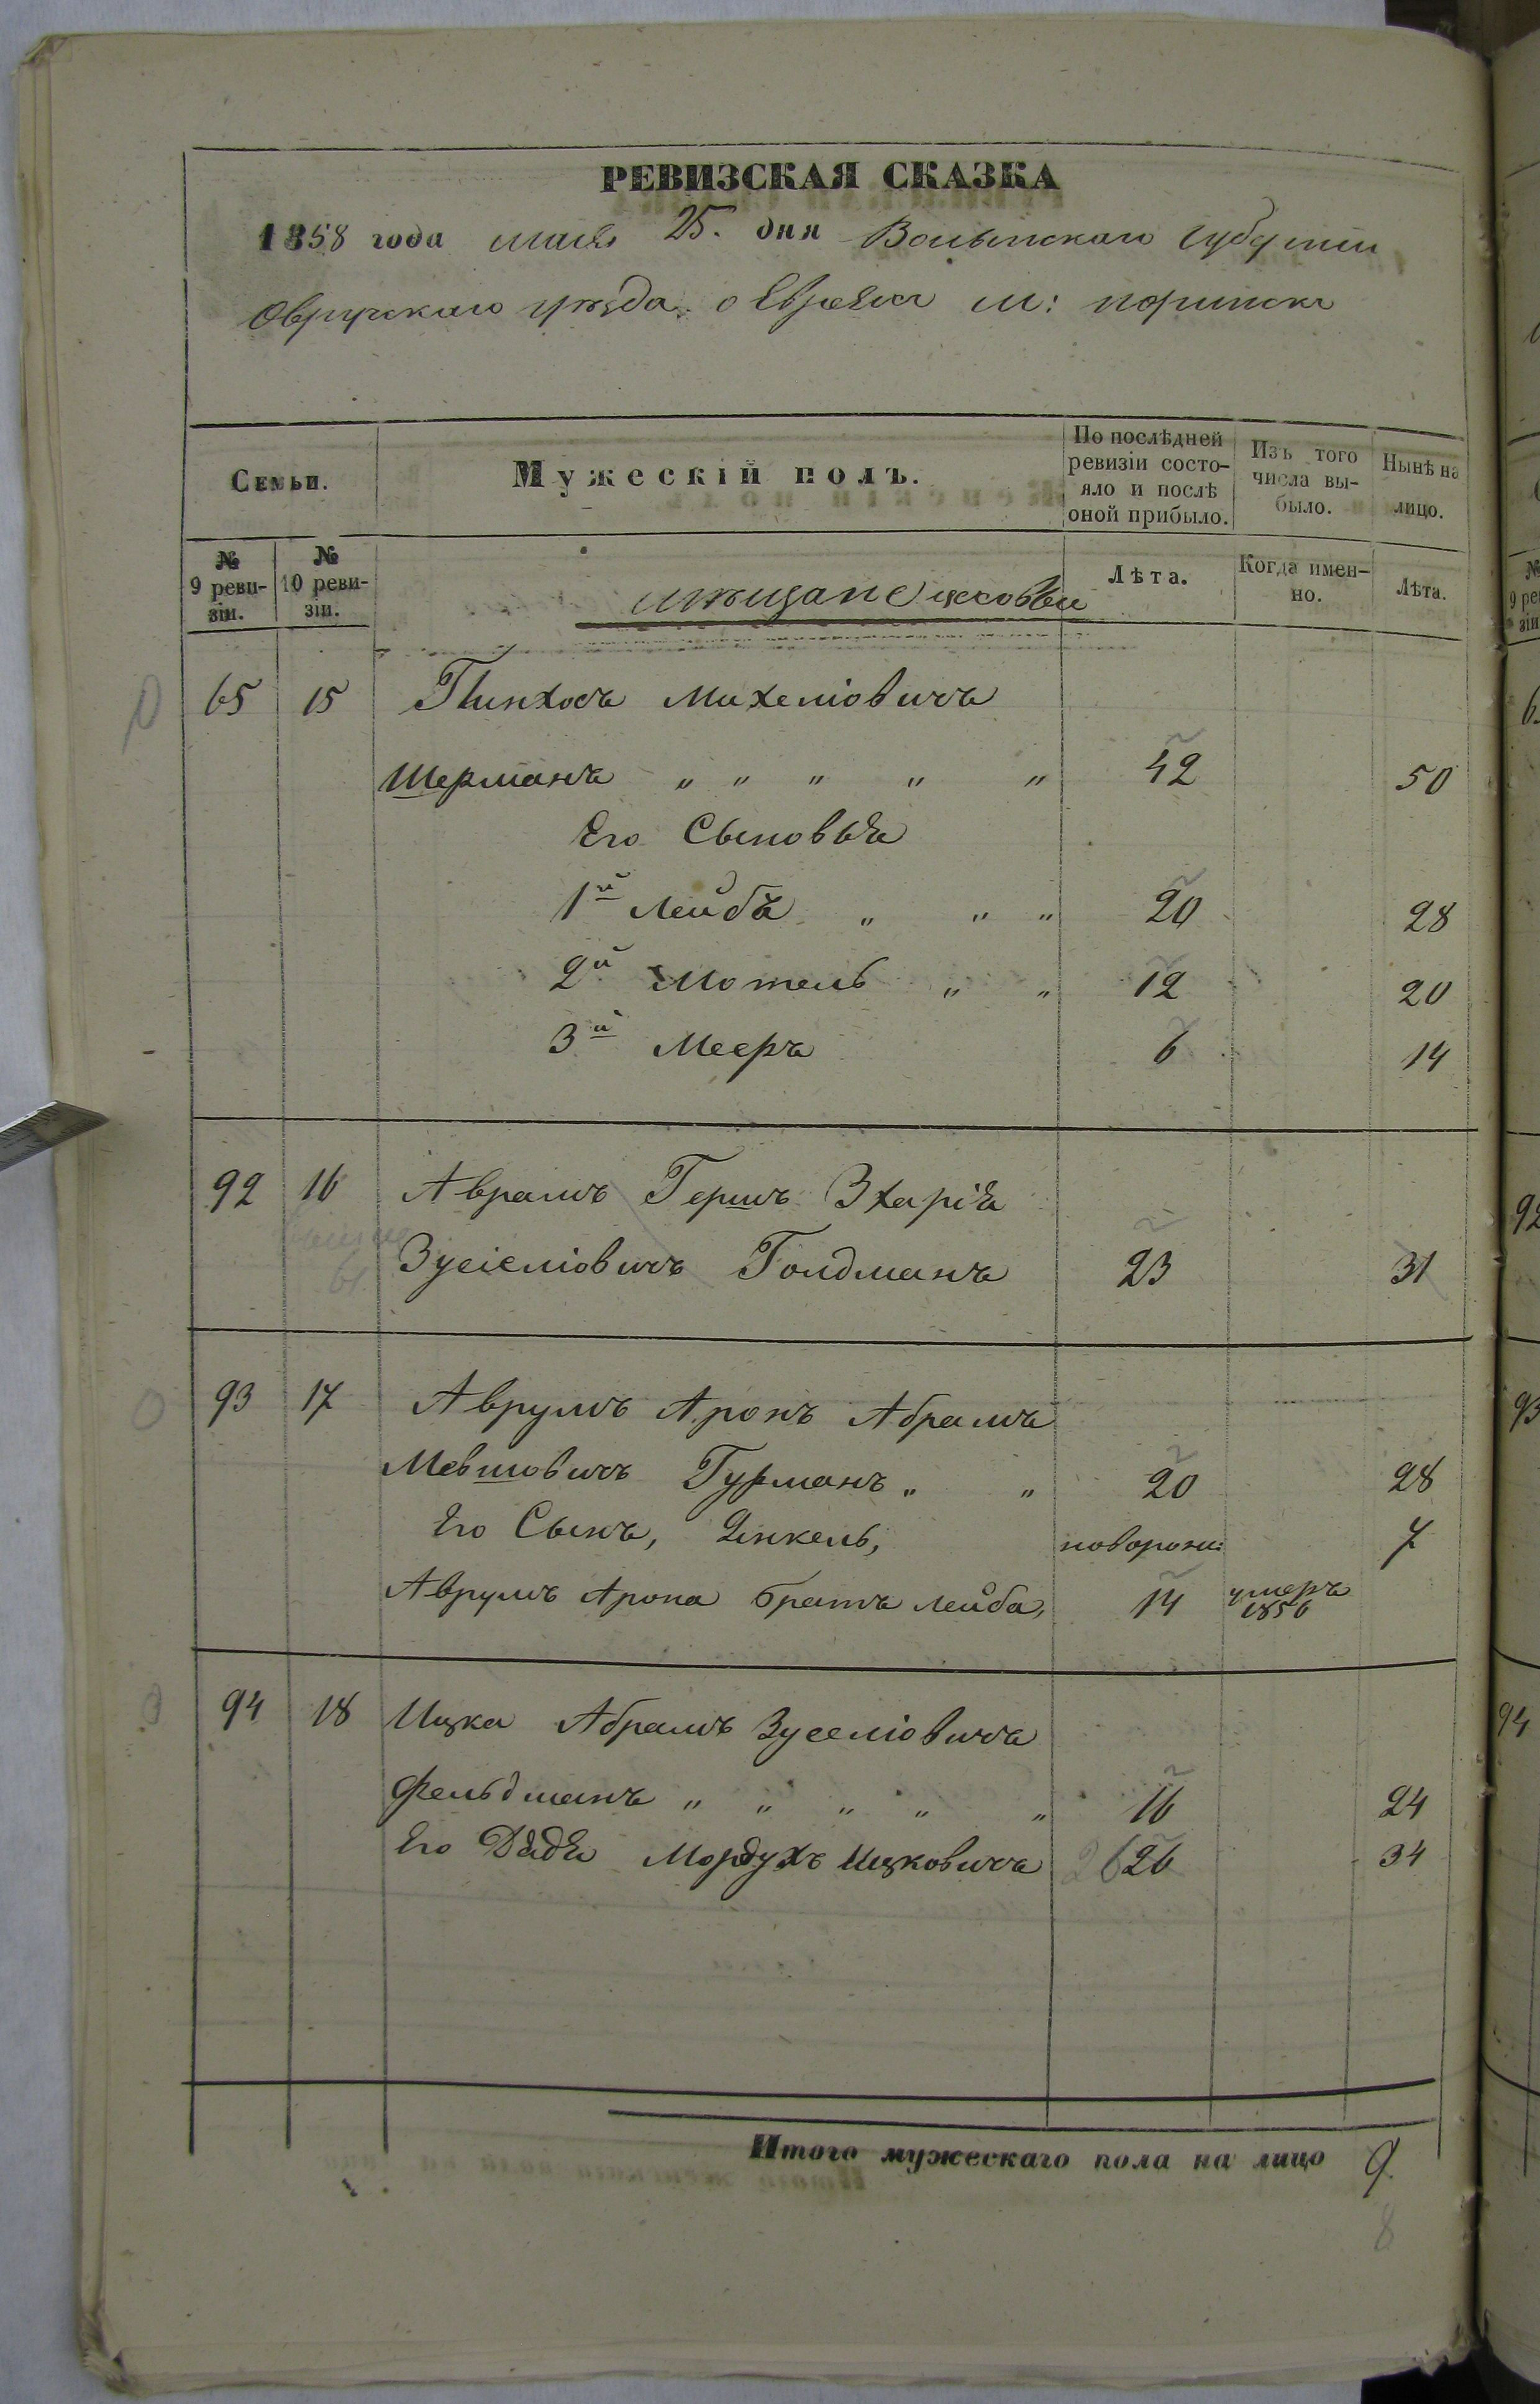 РЕВИЗСКАЯ СКАЗКА
1858 года мая 25. дня Волынской Губерніи
Овручскаго уѣзда о Евреяхъ м: Норинска
Семьи.
Мужескій полъ.
По послѣдней ревизіи состо-
яло и послѣ оной прибыло.
Изъ того числа вы-
было.
Нынѣ на лицо.
№ 9 реви-
зіи.
№ 10 реви-
зіи.
мѣщане
Лѣта.
Когда имен-
но.
Лѣта.
65 15 Пинхосъ Михеліовичъ
Шерманъ „ „ „ „ „ 42 50
Его Сыновья
1й Лейба „ „ „ 20 28
2й Мотель „ „ 12 20
3й Мееръ 6 14
92 16 Аврамъ Гершъ Зхарія
Зусіеліовичъ Голдманъ 23 31
93 17 Аврумъ Аронъ Абрамъ
Мевшовичъ Гурманъ „ „ 20 28
Его Сынъ, Янкель, новорож: 7
Аврумъ Арона братъ Лейба, 14 умеръ 1856
94 18 Ицка Абрамъ Зуселіовичъ
Фельдманъ „ „ „ „ „ 16 24
Его Дядя Мордухъ Ицковичъ 26 26 34
Итого мужескаго пола на лицо 9
8